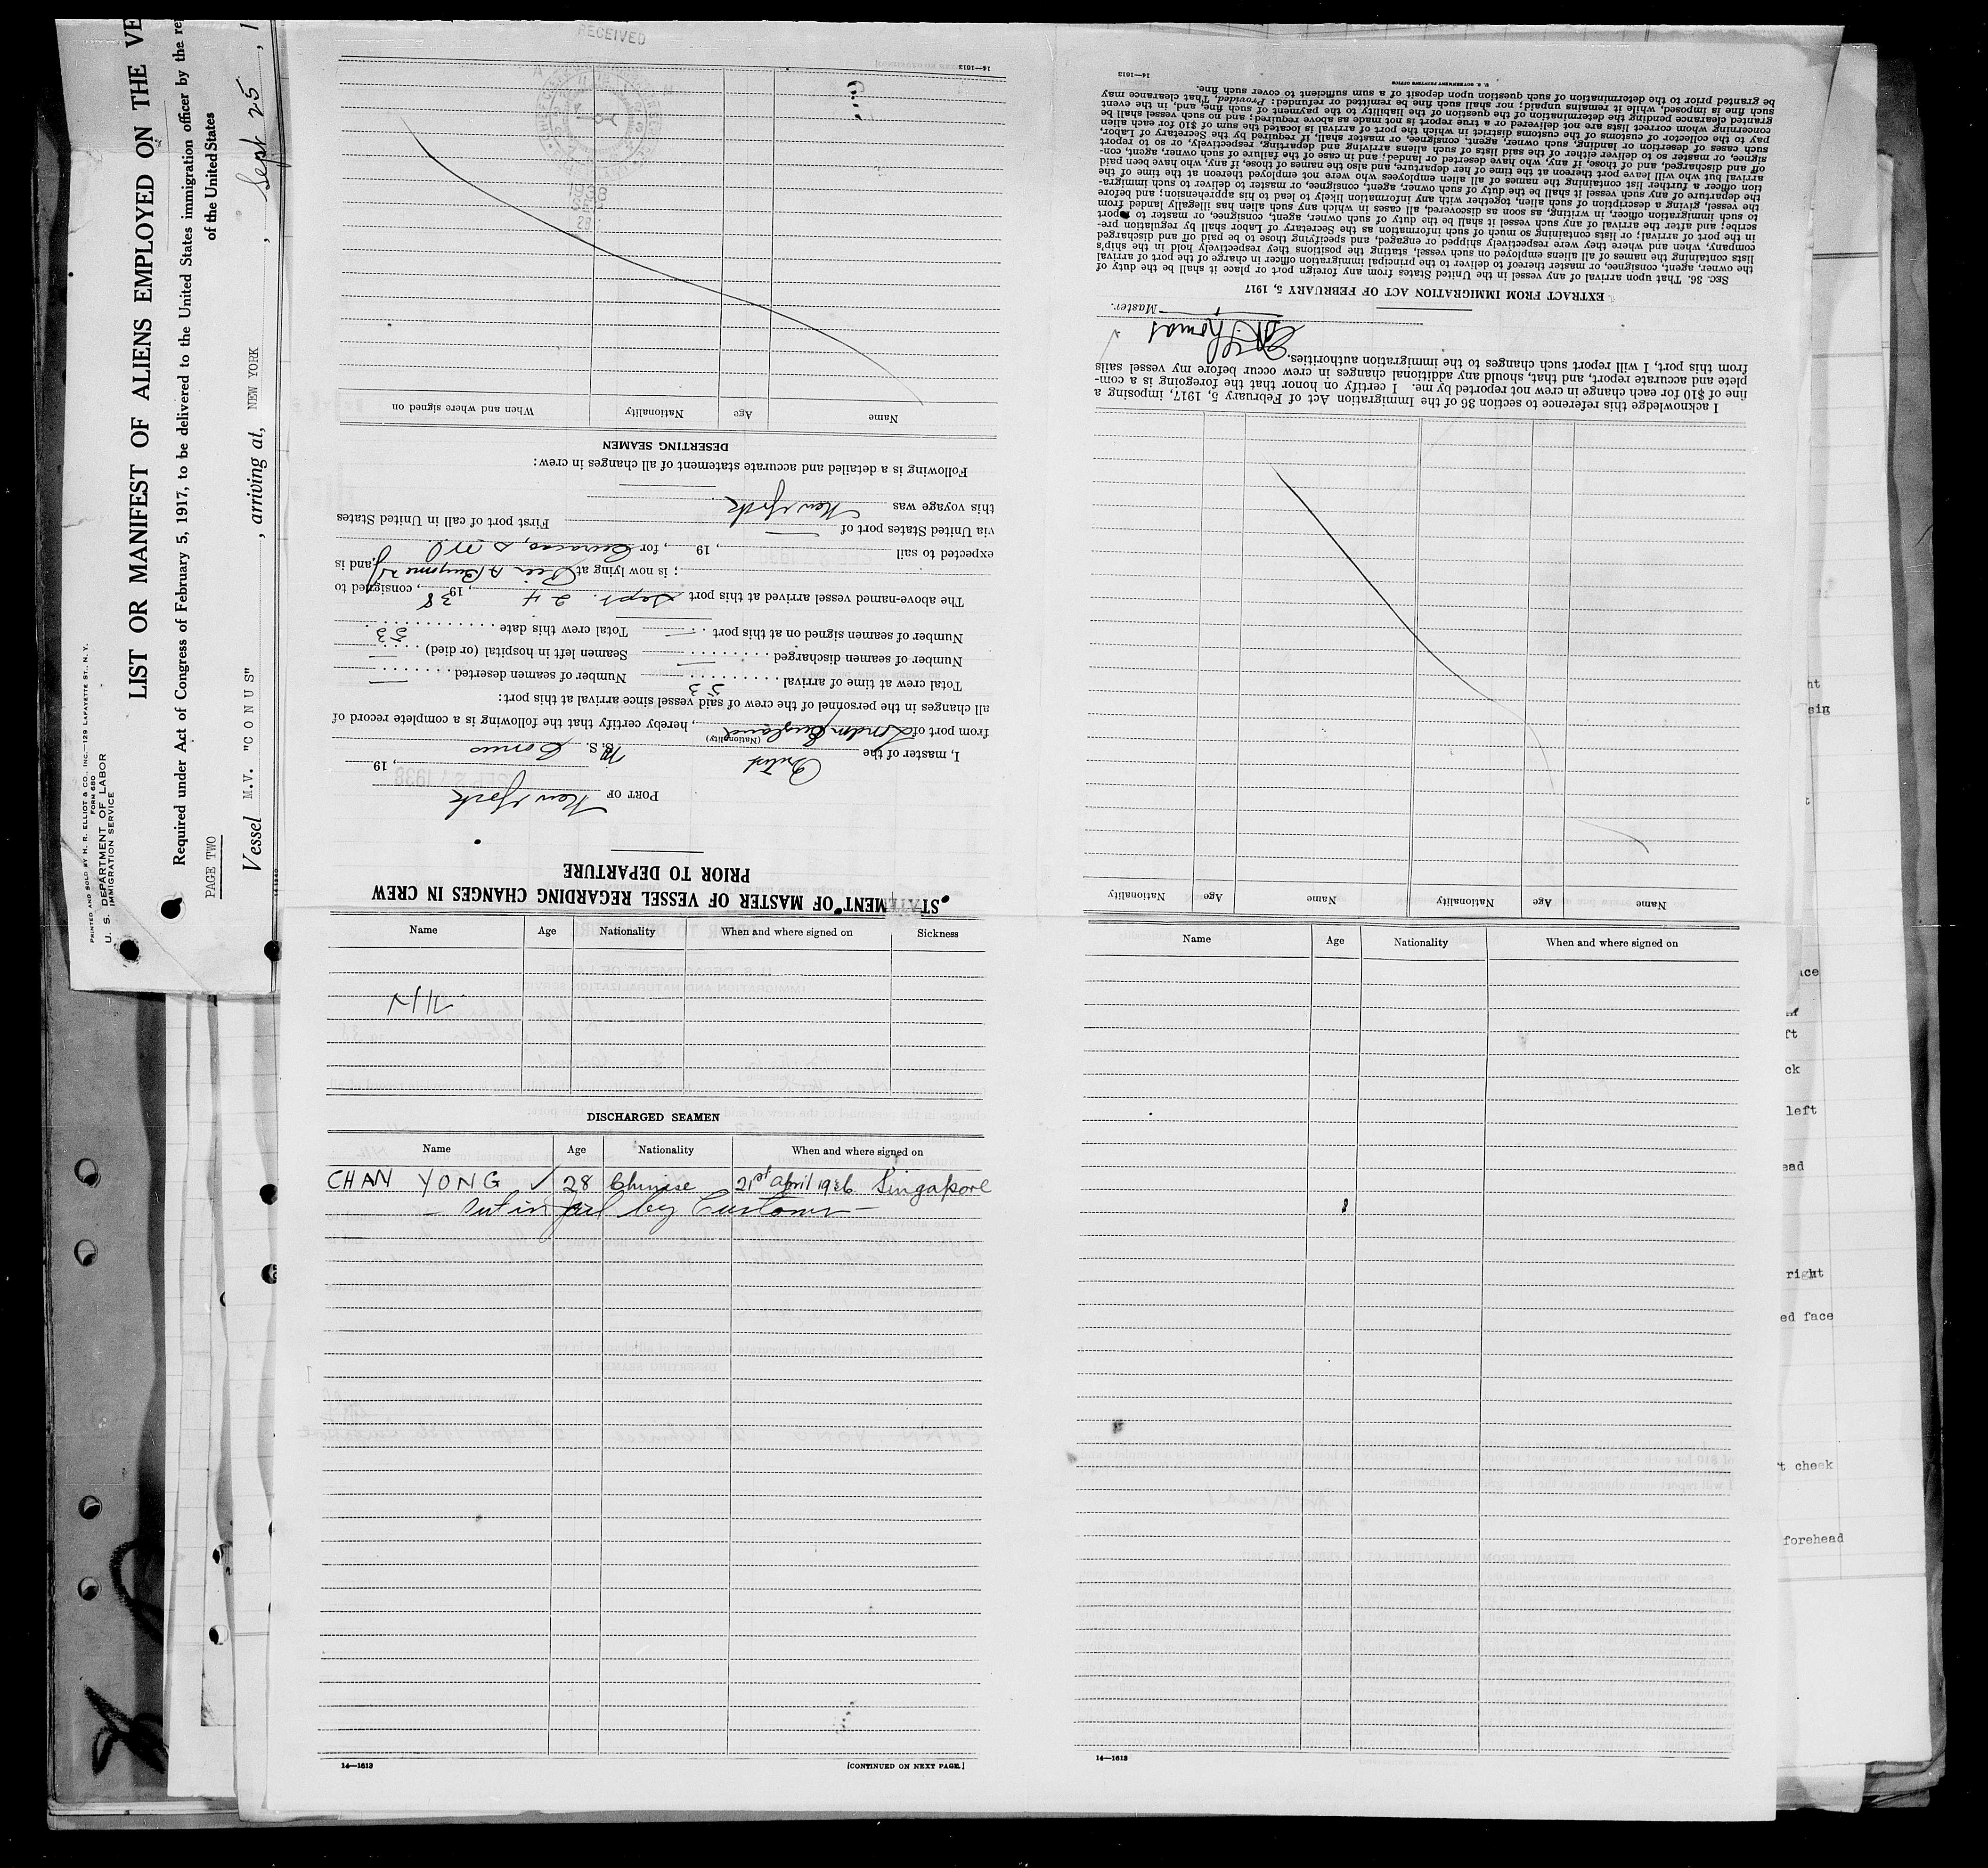 PRINTED AND SOLD BY H. R. ELLIOT & CO., INC.—129 LAFAYETTE ST., N.Y.
FORM 680
U. S. DEPARTMENT OF LABOR
IMMIGRATION SERVICE
LIST OR MANIFEST OF ALIENS EMPLOYED ON THE VE
Required under Act of Congress of February 5, 1917, to be delivered to the United States immigration officer by the re
of the United States
PAGE TWO
Vessel M.V. "CONUS" , arriving at, NEW YORK , Sept 25 , 1
STATEMENT OF MASTER OF VESSEL REGARDING CHANGES IN CREW
PRIOR TO DEPARTURE
PORT OF New York
SEP 27 1938 , 19
I, master of the British M.S. S. Conus
(Nationality)
from port of London England , hereby certify that the following is a complete record of
all changes in the personnel of the crew of said vessel since arrival at this port:
Total crew at time of arrival 53 Number of seamen deserted —
Number of seamen discharged — Seamen left in hospital (or died) —
Number of seamen signed on at this port — Total crew this date 53
The above-named vessel arrived at this port Sept. 24 , 1938 , consigned to
; is now lying at Pier A Bayonne NJ , and is
expected to sail , 19 , for Curacao, D W I.
via United States port of — First port of call in United States
this voyage was New York
Following is a detailed and accurate statement of all changes in crew:
DESERTING SEAMEN
Name Age Nationality When and where signed on
1938
SEP
28
RECEIVED
14—1613
Name Age Nationality Name Age Nationality
I acknowledge this reference to section 36 of the Immigration Act of February 5, 1917, imposing a
fine of $10 for each change in crew not reported by me. I certify on honor that the foregoing is a com-
plete and accurate report, and that, should any additional changes in crew occur before my vessel sails
from this port, I will report such changes to the immigration authorities.
Thomas
Master.
EXTRACT FROM IMMIGRATION ACT OF FEBRUARY 5, 1917
SEC. 36. That upon arrival of any vessel in the United States from any foreign port or place it shall be the duty of
the owner, agent, consignee, or master thereof to deliver to the principal immigration officer in charge of the port of arrival
lists containing the names of all aliens employed on such vessel, stating the positions they respectively hold in the ship's
company, when and where they were respectively shipped or engaged, and specifying those to be paid off and discharged
in the port of arrival; or lists containing so much of such information as the Secretary of Labor shall by regulation pre-
scribe; and after the arrival of any such vessel it shall be the duty of such owner, agent, consignee, or master to report
to such immigration officer, in writing, as soon as discovered, all cases in which any such alien has illegally landed from
the vessel, giving a description of such alien, together with any information likely to lead to his apprehension; and before
the departure of any such vessel it shall be the duty of such owner, agent, consignee, or master to deliver to such immigra-
tion officer a further list containing the names of all alien employees who were not employed thereon at the time of the
arrival but who will leave port thereon at the time of her departure, and also the names of those, if any, who have been paid
off and discharged, and of those, if any, who have deserted or landed; and in case of the failure of such owner, agent, con-
signee, or master so to deliver either of the said lists of such aliens arriving and departing, respectively, or so to report
such cases of desertion or landing, such owner, agent, consignee, or master shall, if required by the Secretary of Labor,
pay to the collector of customs of the customs district in which the port of arrival is located the sum of $10 for each alien
concerning whom correct lists are not delivered or a true report is not made as above required; and no such vessel shall be
granted clearance pending the determination of the question of the liability to the payment of such fine, and, in the event
such fine is imposed, while it remains unpaid; nor shall such fine be remitted or refunded: Provided, That clearance may
be granted prior to the determination of such question upon deposit of a sum sufficient to cover such fine.
U. S. GOVERNMENT PRINTING OFFICE
14—1613
Name Age Nationality When and where signed on Sickness
DISCHARGED SEAMEN
Name Age Nationality When and where signed on
CHAN YONG ✓ 28 Chinese 21st April 1936 Singapore
— Put in jail by Customs —
14—1613 [CONTINUED ON NEXT PAGE.]
Name Age Nationality When and where signed on
14—1613
ht
sig
ace
ft
ck
left
ead
right
ed face
t cheek
forehead